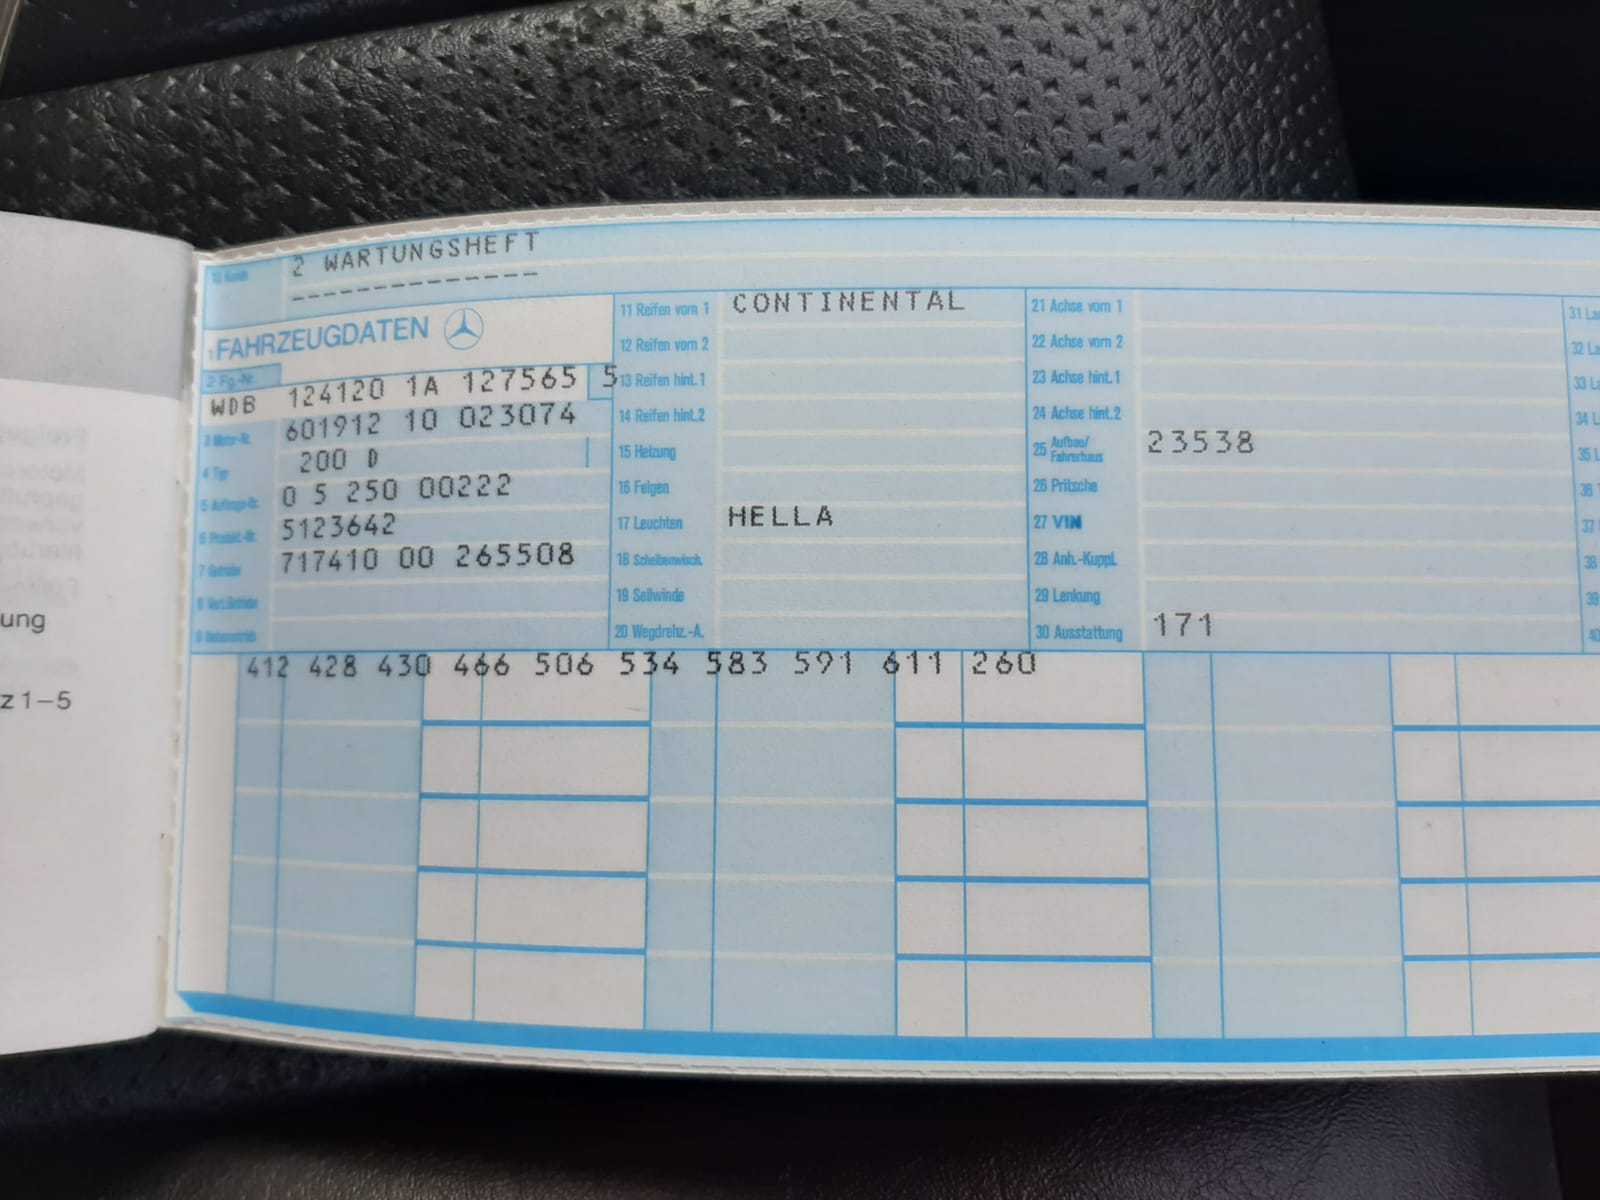 2 WARTUNGSHEFT
------------------
1 FAHRZEUGDATEN
2 Fg.-Nr.
WDB 124120 1A 127565 5
3 Motor-Nr. 601912 10 023074
4 Typ 200 D
5 Auftrags-Nr. 0 5 250 00222
6 Produkt.-Nr. 5123642
7 Getriebe 717410 00 265508
8 Vert.Getriebe
9 Nebenantrieb
11 Reifen vorn 1 CONTINENTAL
12 Reifen vorn 2
13 Reifen hint.1
14 Reifen hint.2
15 Heizung
16 Felgen
17 Leuchten HELLA
18 Scheibenwisch.
19 Seilwinde
20 Wegdrehz.-A.
21 Achse vorn 1
22 Achse vorn 2
23 Achse hint.1
24 Achse hint.2
25 Aufbau/
Fahrerhaus 23538
26 Pritsche
27 VIN
28 Anh.-Kuppl.
29 Lenkung
30 Ausstattung 171
31 La
32 La
33 La
34 L
35 L
36
37
38
39
40
412 428 430 466 506 534 583 591 611 260
ung
z 1–5